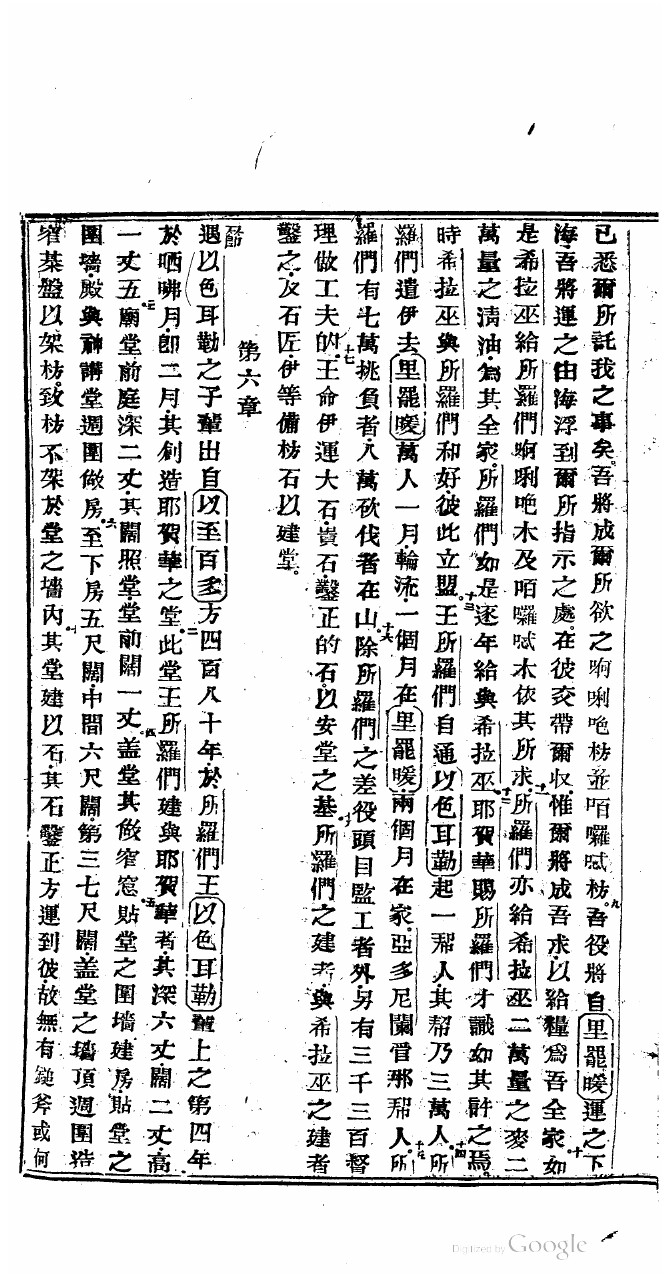 已悉爾所託我之事矣。吾將成爾所欲之𠾖唎吔枋並咟囉𠵽枋。九吾役將自里罷暖運之下
海。吾將運之由海浮到爾所指示之處。在彼交帶爾收。惟爾將成吾求以給糧為吾全家。十如
是希拉巫給所羅們𠾖唎吔木及咟囉𠵽木依其所求。十一所羅們亦給希拉巫二萬量之麥二
萬量之清油為其全家。所羅們如是逐年給與希拉巫。十二耶賀華賜所羅們才識如其許之焉。
時希拉巫與所羅們和好彼此立盟。十三王所羅們自通以色耳勒起一帮人。其帮乃三萬人。十四所
羅們遣伊去里罷暖萬人一月輪流一個月在里罷暖兩個月在家。亞多尼蘭管那帮人。十五所
羅們有七萬挑負者八萬砍伐者在山。十六除所羅們之差役頭目監工者外另有三千三百督
理做工夫的。十七王命伊運大石貴石鑿正的石以安堂之基。十八所羅們之建者與希拉巫之建者
鑿之及石匠。伊等備枋石以建堂。
第六章
遇以色耳勒之子輩出自以至百多方四百八十年於所羅們王以色耳勒輩上之第四年
於哂咈月即二月其創造耶賀華之堂。二此堂王所羅們建與耶賀華者其深六丈闊二丈高
一丈五。三廟堂前庭深二丈其闊照堂堂前闊一丈。四蓋堂其做窄窓。五貼堂之圍墻建房貼堂之
圍墻殿與神講堂週圍做房。六至下房五尺闊中間六尺闊第三七尺闊蓋堂之墻頂週圍造
窄基盤以架枋。致枋不架於堂之墻內。七其堂建以石其石鑿正方運到彼故無有鎚斧或何
Digitized by Google